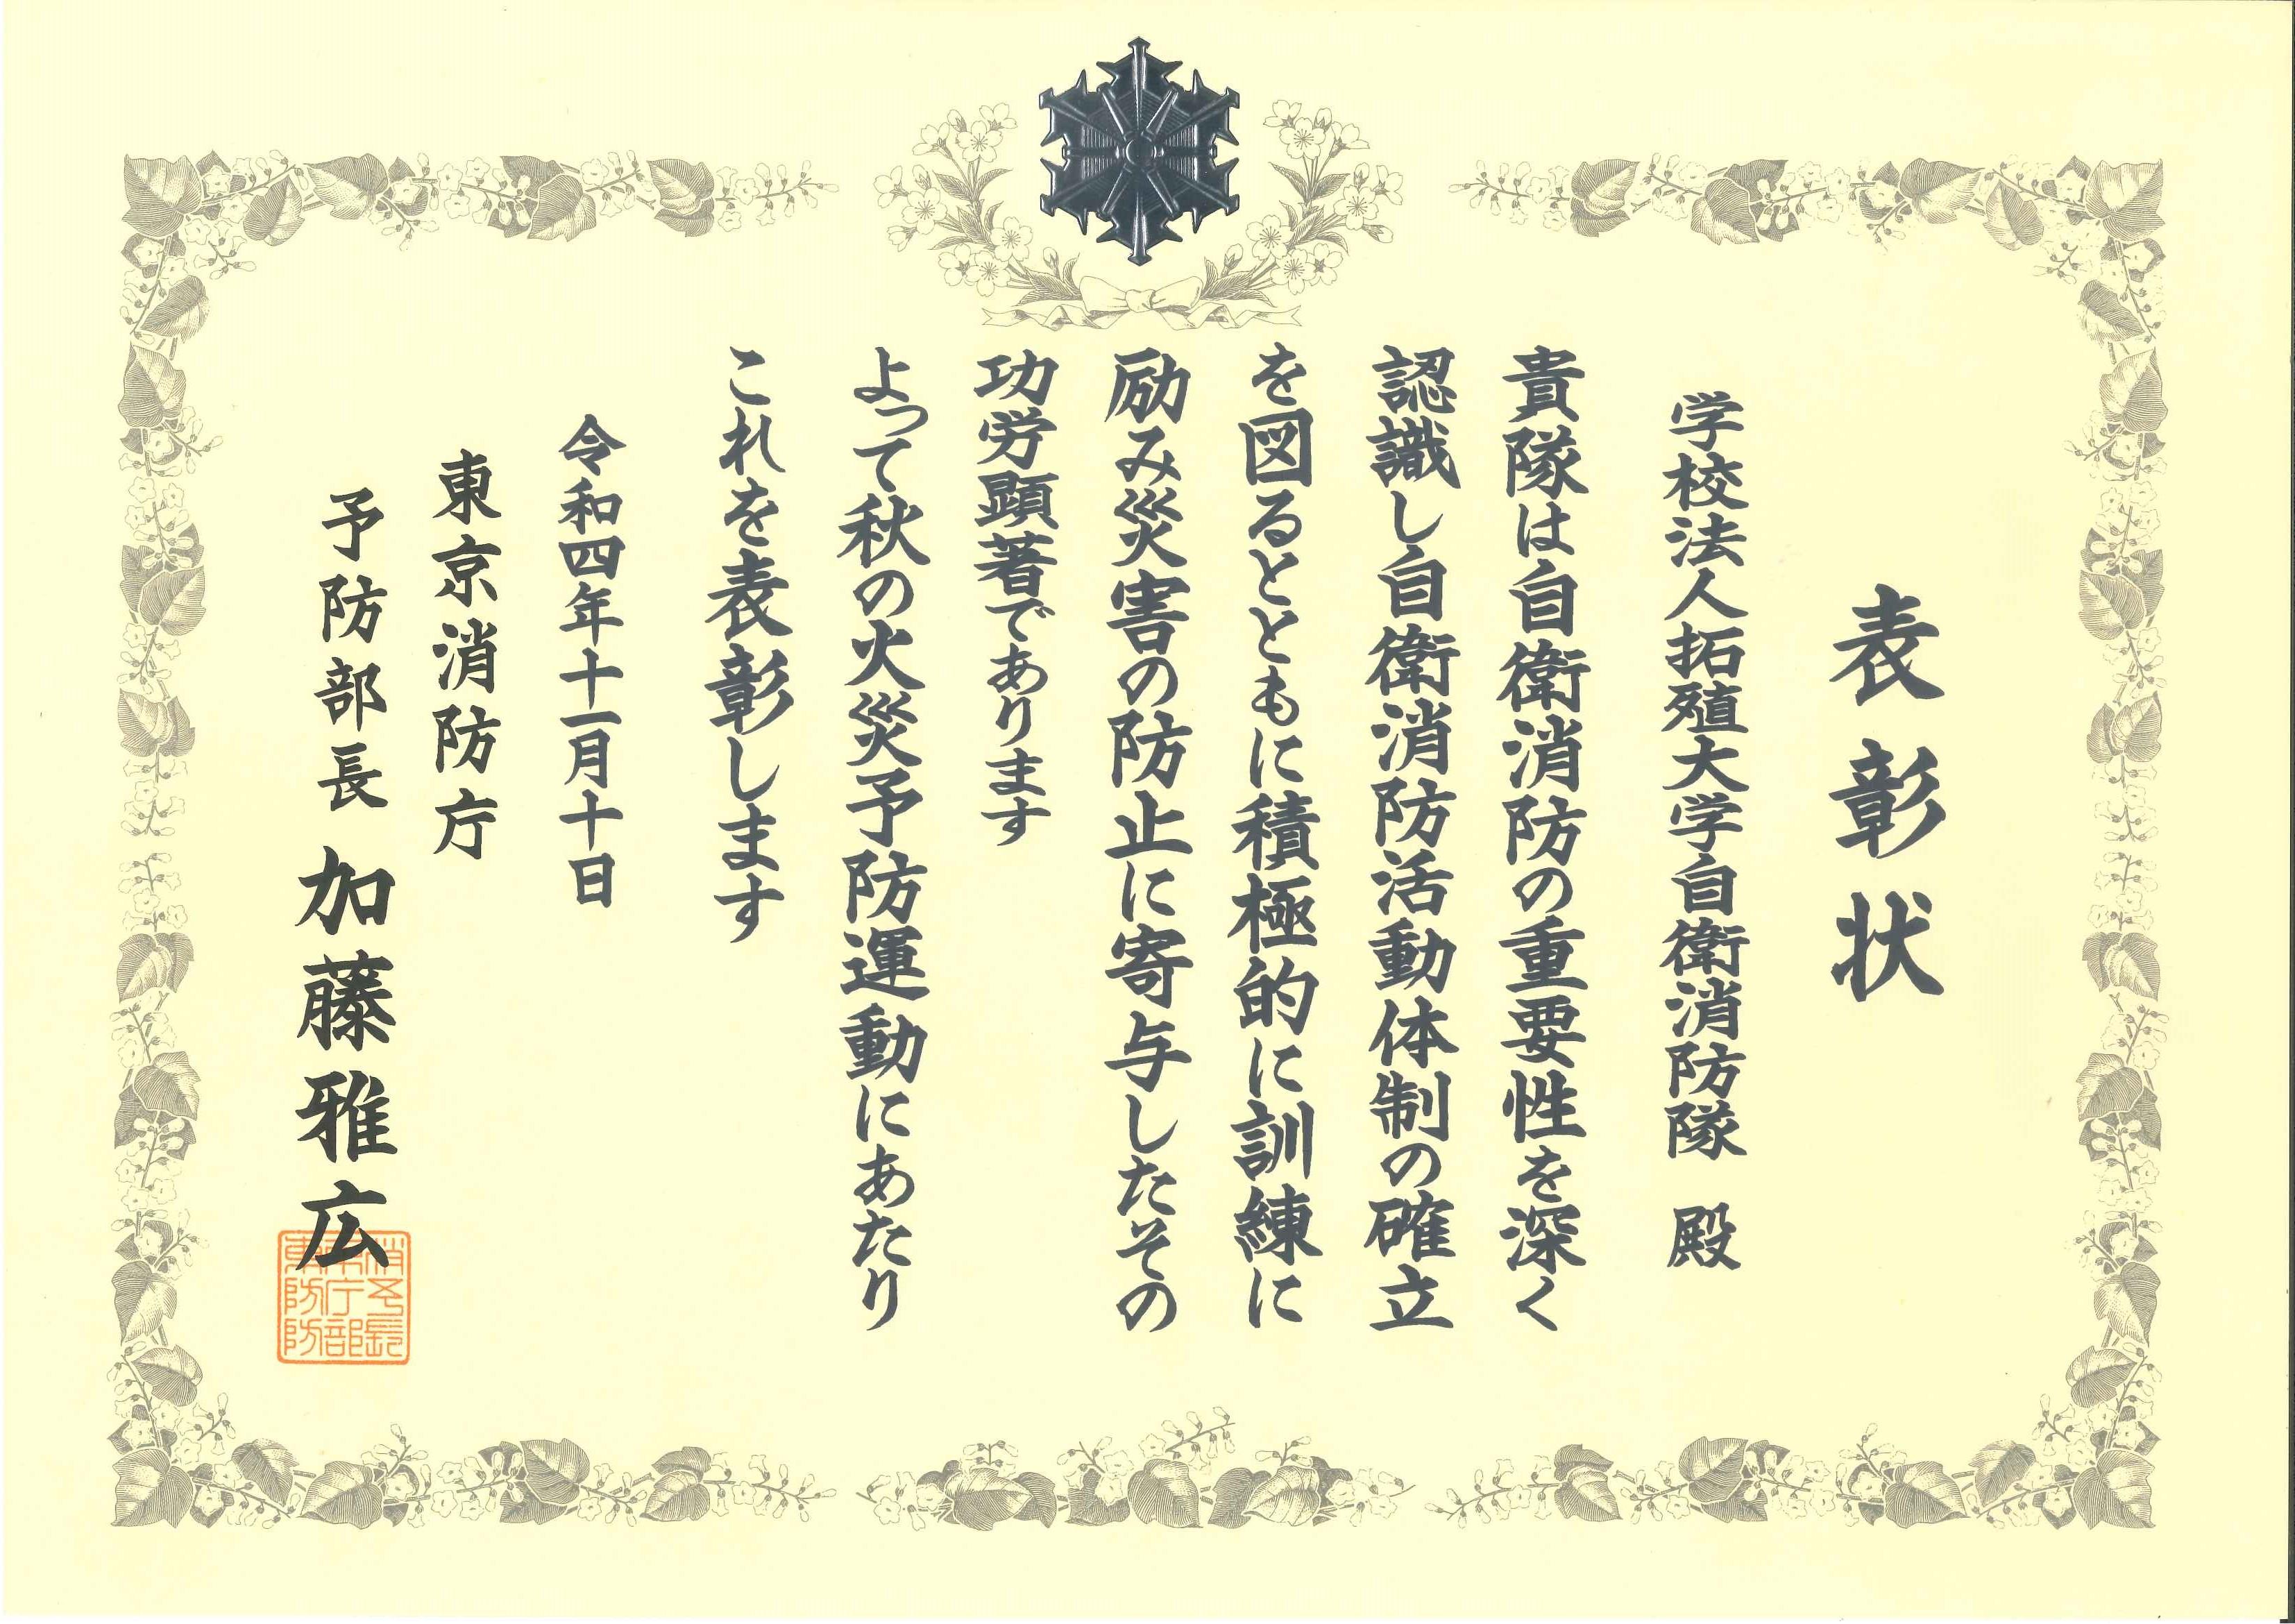 表彰状
学校法人拓殖大学自衛消防隊 殿
貴隊は自衛消防の重要性を深く
認識し自衛消防活動体制の確立
を図るとともに積極的に訓練に
励み災害の防止に寄与したその
功労顕著であります
よって秋の火災予防運動にあたり
これを表彰します
令和四年十一月十日
東京消防庁
予防部長 加藤雅広